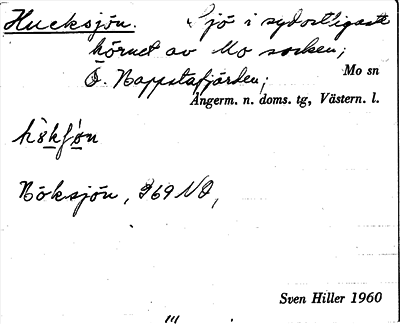 Hucksjön. Sjö i sydostligaste
hörnet av Mo socken;
Ö. Nappstafjärden;
Mo sn
Ångerm. n. doms. tg, Västern. l.
Böksjön, 969 NO,
Sven Hiller 1960